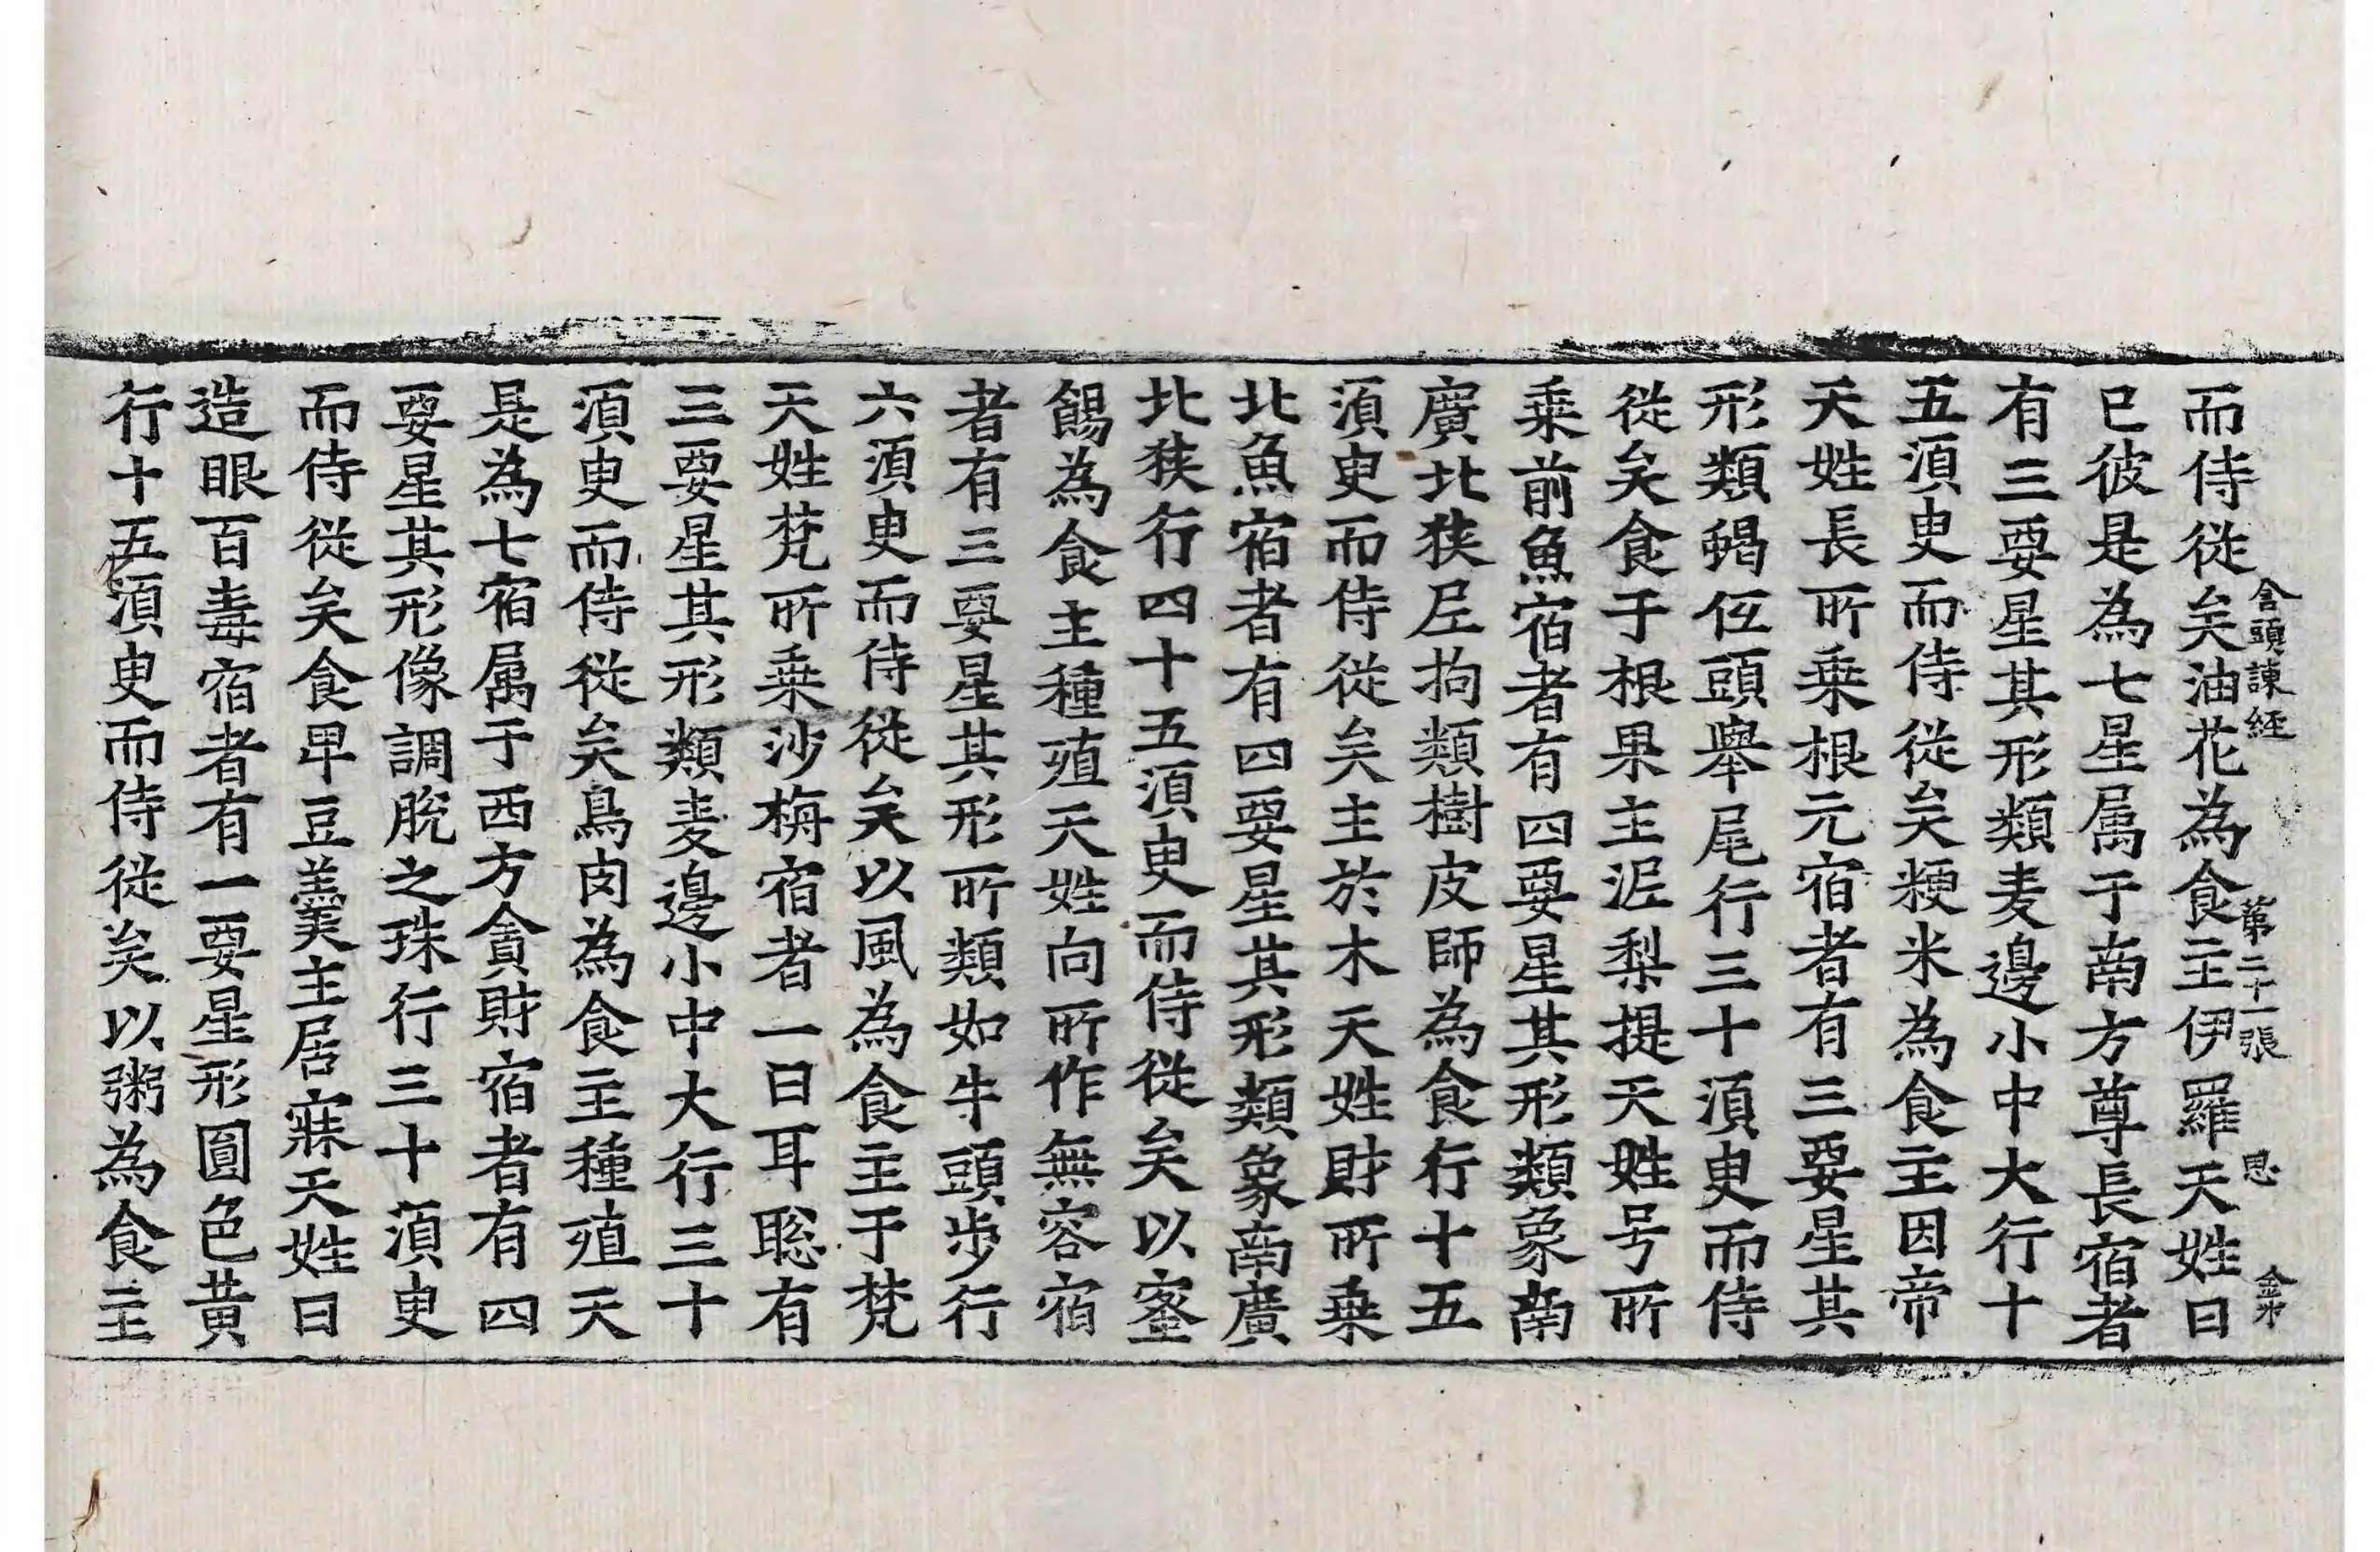 舍頭諫經　第二十一張　恩　金才
而侍従矣油花為食主伊羅天姓曰
已彼是為七星属于南方尊長宿者
有三要星其形類麦邊小中大行十
五湏臾而侍従矣粳米為食主因帝
天姓長所乗根元宿者有三要星其
形類蝎伍頭舉尾行三十湏臾而侍
従矣食于根果主泥梨提天姓号所
乗前魚宿者有四要星其形類象南
廣北狭𡱈拘類樹皮師為食行十五
湏臾而侍従矣主於木天姓財所乗
北魚宿者有四要星其形類象南廣
北狭行四十五湏臾而侍従矣以蜜
餳為食主種殖天姓向所作無容宿
者有三要星其形所類如牛頭步行
六湏臾而侍従矣以風為食主于梵
天姓梵所乗沙栴宿者一曰耳聡有
三要星其形類麦邊小中大行三十
湏臾而侍従矣鳥肉為食主種殖天
是為七宿属于西方貪財宿者有四
要星其形像調脫之珠行三十湏臾
而侍従矣食甲豆羹主居寐天姓曰
造眼百毒宿者有一要星形圓色黃
行十五湏臾而侍従矣以粥為食主